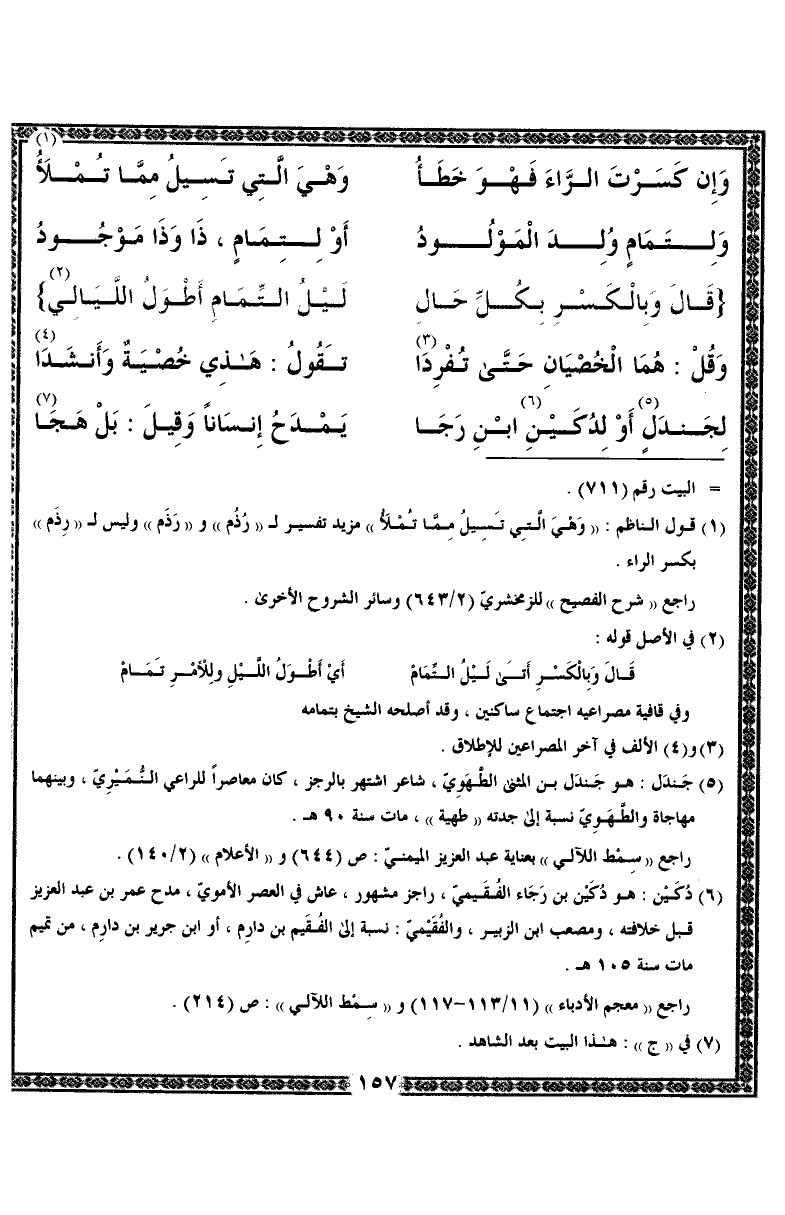 وَإِن كَسَرْتَ الرَّاءَ فَهْوَ خَطَأُ وَهْيَ الَّتِي تَسِيلُ مِمَّا تُمْلَأُ (١)
وَلِتَمَامٍ وُلِدَ الْمَوْلُودُ أَوْ لِتِمَامٍ ، ذَا وَذَا مَوْجُودُ
{قَالَ وَبِالْكَسْرِ بِكُلِّ حَالِ لَيْلُ التِّمَامِ أَطْوَلُ اللَّيَالِي} (٢)
وَقُلْ : هُمَا الْخُصْيَانِ حَتَّىٰ تُفْرِدَا (٣) تَقُولُ : هَٰذِي خُصْيَةٌ وَأَنشَدَا (٤)
لِجَندَلٍ (٥) أَوْ لِدُكَيْنِ (٦) ابْنِ رَجَا يَمْدَحُ إِنسَاناً وَقِيلَ : بَلْ هَجَا (٧)
= البيت رقم (٧١١) .
(١) قول الناظم : « وَهْيَ الَّتِي تَسِيلُ مِمَّا تُمْلَأُ » مزيد تفسير لـ « رُذُم » و « رَذَم » وليس لـ « رِذَم »
بكسر الراء .
راجع « شرح الفصيح » للزمخشريّ (٢/٦٤٣) وسائر الشروح الأخرىٰ .
(٢) في الأصل قوله :
قَالَ وَبِالْكَسْرِ أَتَىٰ لَيْلُ التِّمَامْ أَيْ أَطْوَلُ اللَّيْلِ وَلِلْأَمْرِ تَمَامْ
وفي قافية مصراعيه اجتماع ساكنين ، وقد أصلحه الشيخ بتمامه
(٣) و(٤) الألف في آخر المصراعين للإطلاق .
(٥) جَندَل : هو جَندَل بن المثنىٰ الطُّهَوِيّ ، شاعر اشتهر بالرجز ، كان معاصراً للراعي النُّمَيْرِيّ ، وبينهما
مهاجاة والطُّهَوِيّ نسبة إلىٰ جدته « طهية » ، مات سنة ٩٠ هـ .
راجع « سِمْط اللآلي » بعناية عبد العزيز الميمنيّ : ص (٦٤٤) و « الأعلام » (٢/١٤٠) .
(٦) دُكَيْن : هو دُكَيْن بن رَجَاء الفُقَيميّ ، راجز مشهور ، عاش في العصر الأمويّ ، مدح عمر بن عبد العزيز
قبل خلافته ، ومصعب ابن الزبير ، والفُقَيْميّ : نسبة إلىٰ الفُقَيم بن دارِم ، أو ابن جرير بن دارِم ، من تميم
مات سنة ١٠٥ هـ .
راجع « معجم الأدباء » (١١/١١٣-١١٧) و « سِمْط اللآلي » : ص (٢١٤) .
(٧) في « ج » : هٰذا البيت بعد الشاهد .
١٥٧